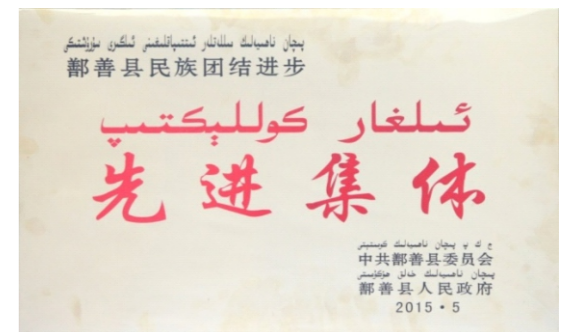 پىچان ناھىيىلىك مىللەتلەر ئىتتىپاقلىقىنى ئىلگىرى سۈرۈشتىكى
鄯善县民族团结进步
ئىلغار كوللېكتىپ
先进集体
ج ك پ پىچان ناھىيىلىك كومىتېتى
中共鄯善县委员会
پىچان ناھىيىلىك خەلق ھۆكۈمىتى
鄯善县人民政府
2015·5